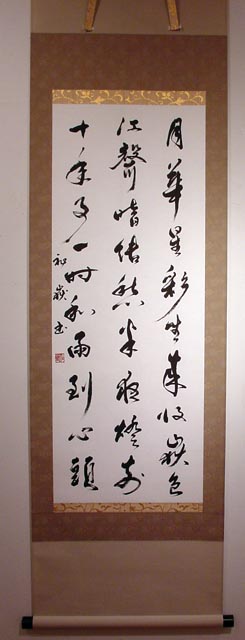 月華星彩坐来収嶽色
江聲暗結愁半夜燈前
十年事一時和雨到心頭
初嶽書